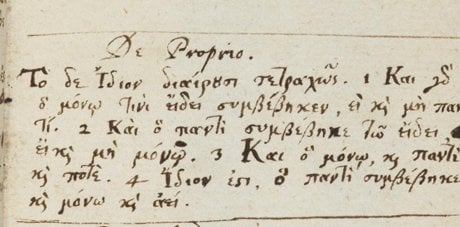 De Proprio.
Τὸ δε Ἴδιον διαίρουσι τετραχῶς. 1 Και γὸ ὃ
ὃ μόνῳ τινὶ εἴδει συμβέβηκεν, εἰ κς μὴ παν
τί. 2 Και ὃ παντὶ συμβέβηκε τῶ εἴδει,
εἰ κς μὴ μόνῳ. 3 Και ὃ μόνῳ, κς παντὶ
κς ποτε. 4 Ἴδιον ἐστι, ὃ παντὶ συμβέβηκε
κς μόνω κς ἀεί.